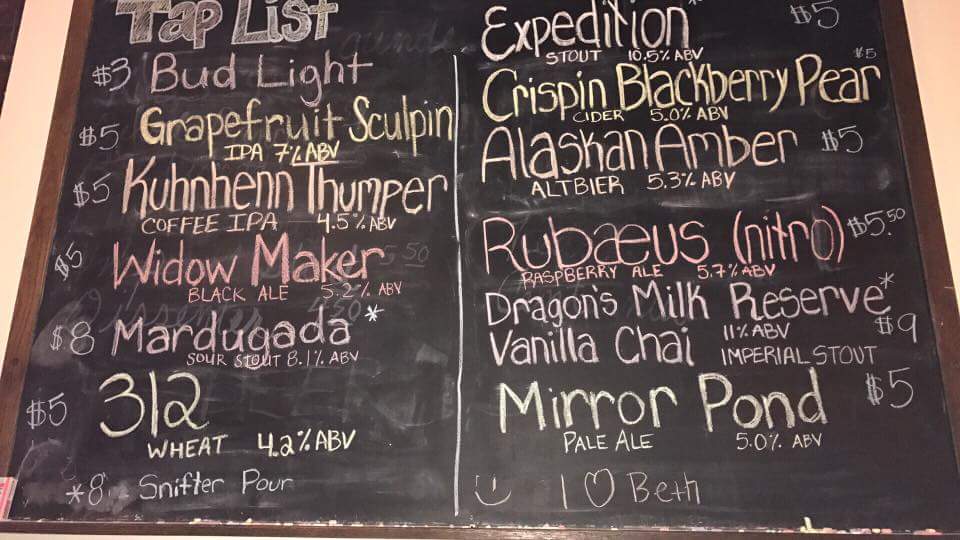 Tap List
$3 Bud Light
$5 Grapefruit Sculpin
IPA 7% ABV
$5 Kuhnhenn Thumper
COFFEE IPA 4.5% ABV
$5 Widow Maker
BLACK ALE 5.2% ABV
$8 Mardugada*
SOUR STOUT 8.1% ABV
$5 312
WHEAT 4.2% ABV
*8 Snifter Pour
Expedition* $5
STOUT 10.5% ABV
Crispin Blackberry Pear $5
CIDER 5.0% ABV
Alaskan Amber $5
ALTBIER 5.3% ABV
Rubaeus (nitro) $5.50
RASPBERRY ALE 5.7% ABV
Dragon's Milk Reserve*
Vanilla Chai 11% ABV $9
IMPERIAL STOUT
Mirror Pond $5
PALE ALE 5.0% ABV
I ♡ Beth